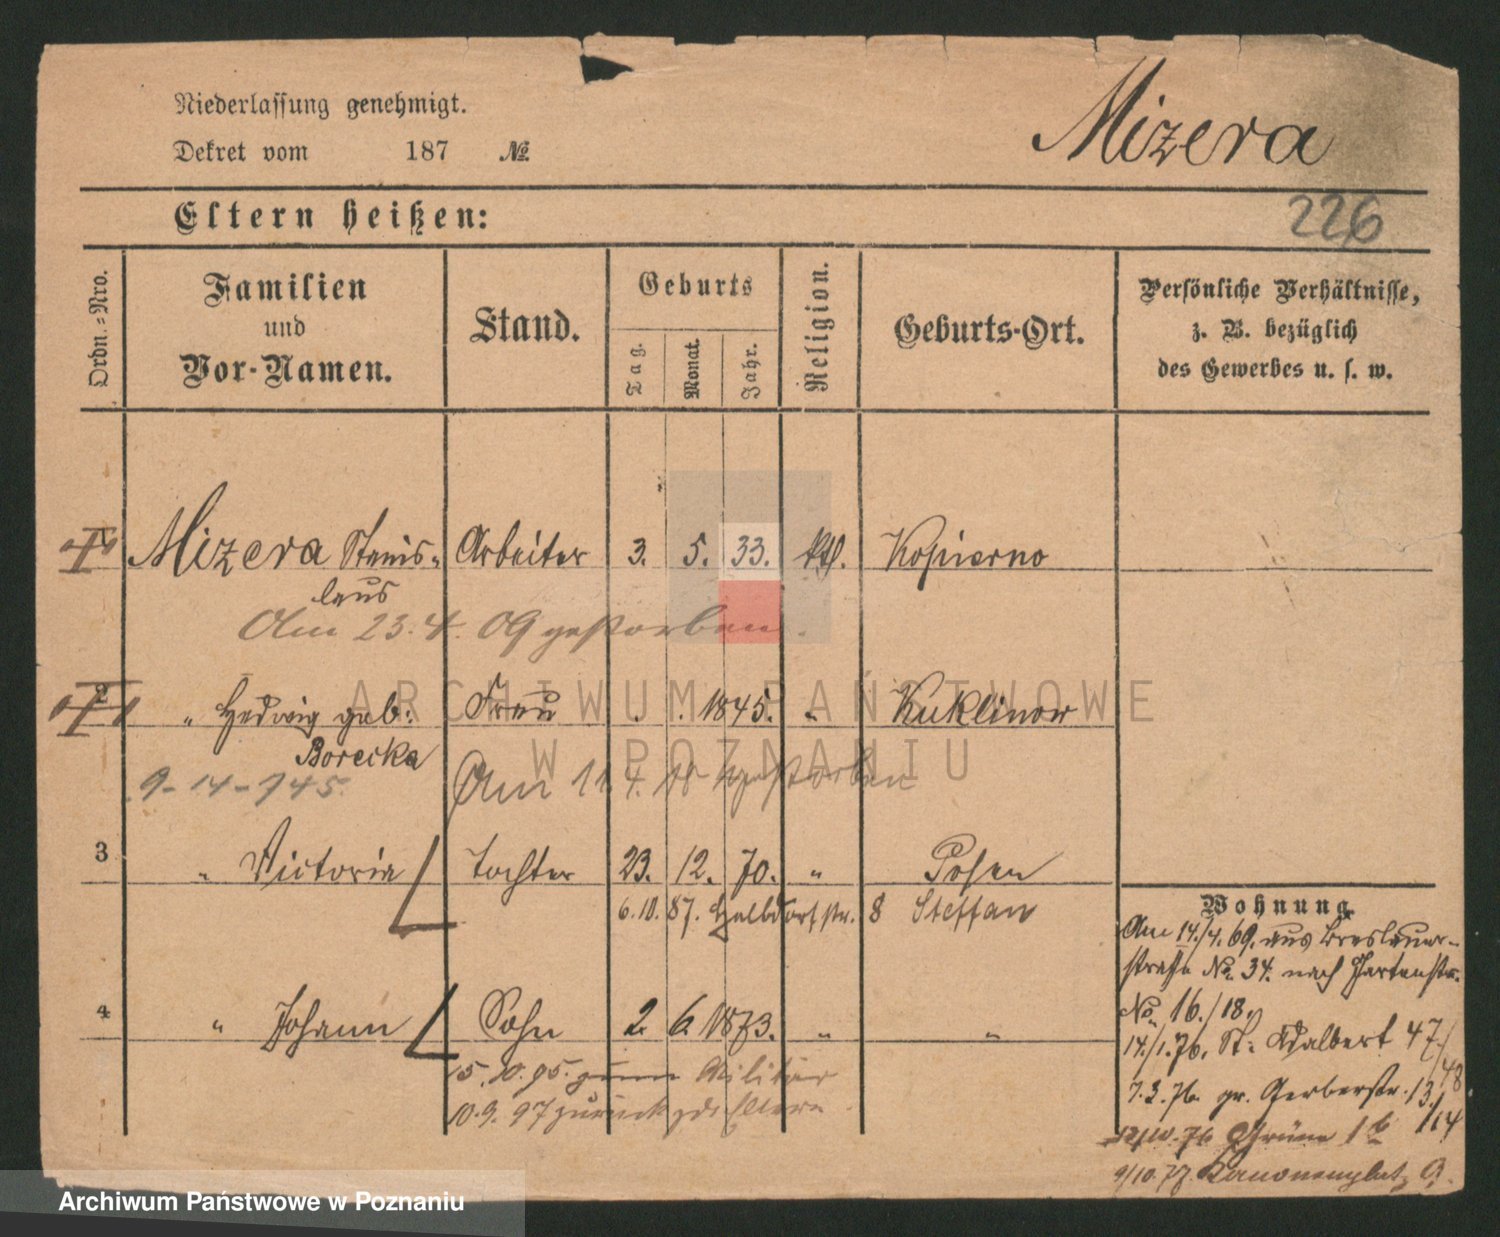 Niederlassung genehmigt.
Dekret vom 187 №
Mizera
Eltern heißen:
226
Ordn.-Nro.
Familien
und
Vor-Namen.
Stand.
Geburts
Tag.
Monat.
Jahr.
Religion.
Geburts-Ort.
Persönliche Verhältnisse,
z. B. bezüglich
des Gewerbes u. s. w.
1 Mizera Stanis- Arbeiter 3. 5. 33. ktl. Kopierno
laus
Am 23. 4. 09 gestorben.
2 " Hedwig geb: Frau 1845. " Kuklinow
Borecka
9-14-745 Am 11. 4. 18 gestorben
3 " Victoria Tochter 23. 12. 70. " Posen
6.10.87. Halbdorfstr. 8 Steffan
4 " Johann Sohn 2. 6. 1873. " "
15.10.95. zum Militär
10.9.97 zurück z. d. Eltern
Wohnung.
Am 14./4. 69. aus Breslauer-
straße No. 34. nach Gartenstr.
No. 16./18.
14./1.76. St. Adalbert 47/48
7.3.76. gr. Gerberstr. 13/14
12/10.76 Grüne 1b
9/10.77. Kanonenplatz 9.
ARCHIWUM PAŃSTWOWE
W POZNANIU
Archiwum Państwowe w Poznaniu